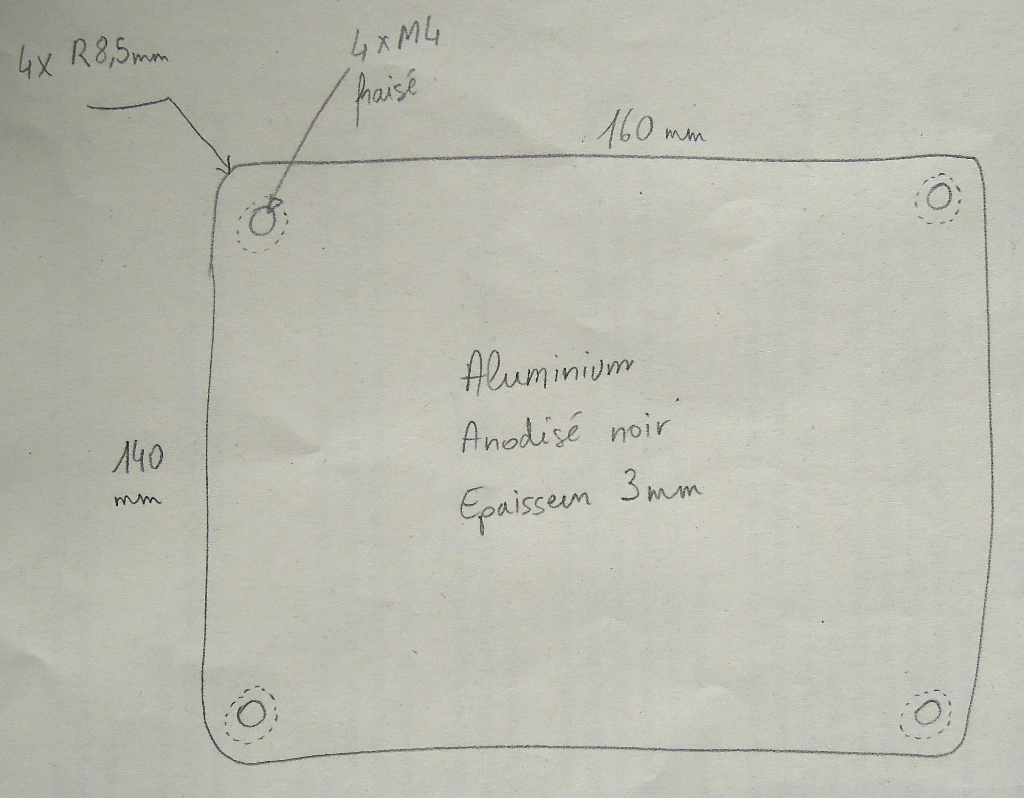 4x R8,5mm
4xM4
fraisé
160 mm
140
mm
Aluminium
Anodisé noir
Epaisseur 3mm